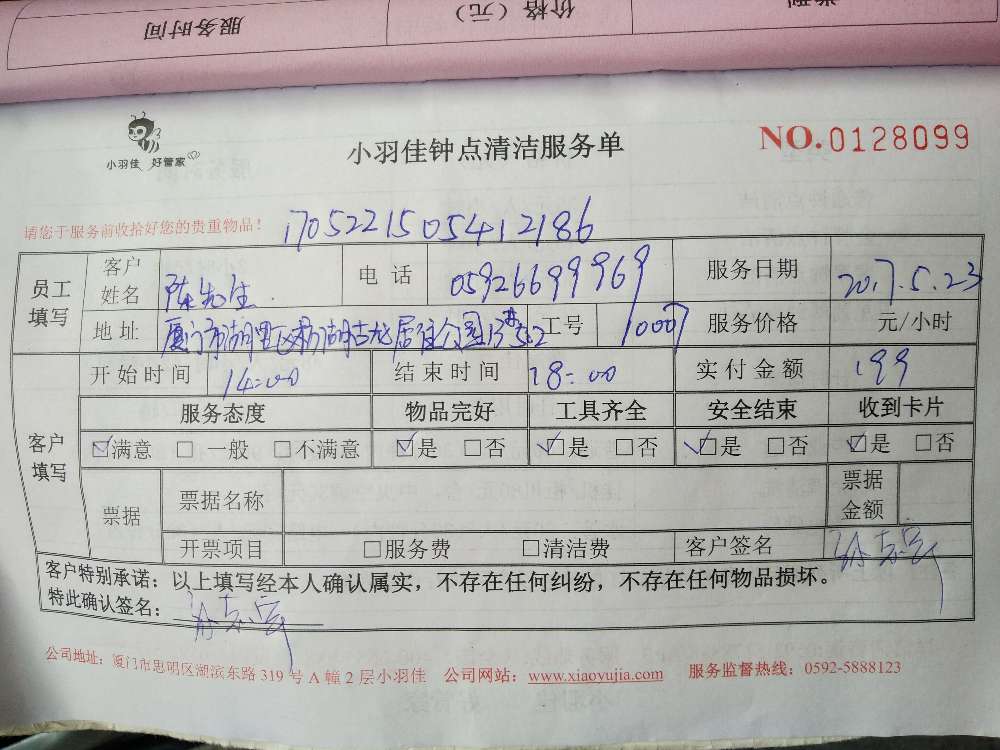 服务时间 价格（元） 类别
小羽佳 好管家
小羽佳钟点清洁服务单
NO.0128099
请您于服务前收拾好您的贵重物品！ 1705221505412186
员工填写 客户姓名 陈先生 电话 05926699969 服务日期 2017.5.23
地址 厦门市湖里区 居住公园 工号 10007 服务价格 元/小时
客户填写 开始时间 14:00 结束时间 18:00 实付金额 199
服务态度 物品完好 工具齐全 安全结束 收到卡片
☑满意 □一般 □不满意 ☑是 □否 ☑是 □否 ☑是 □否 ☑是 □否
票据 票据名称 票据金额
开票项目 □服务费 □清洁费 客户签名
客户特别承诺：以上填写经本人确认属实，不存在任何纠纷，不存在任何物品损坏。
特此确认签名：
公司地址：厦门市思明区湖滨东路 319 号 A 幢 2 层小羽佳 公司网站：www.xiaoyujia.com 服务监督热线：0592-5888123